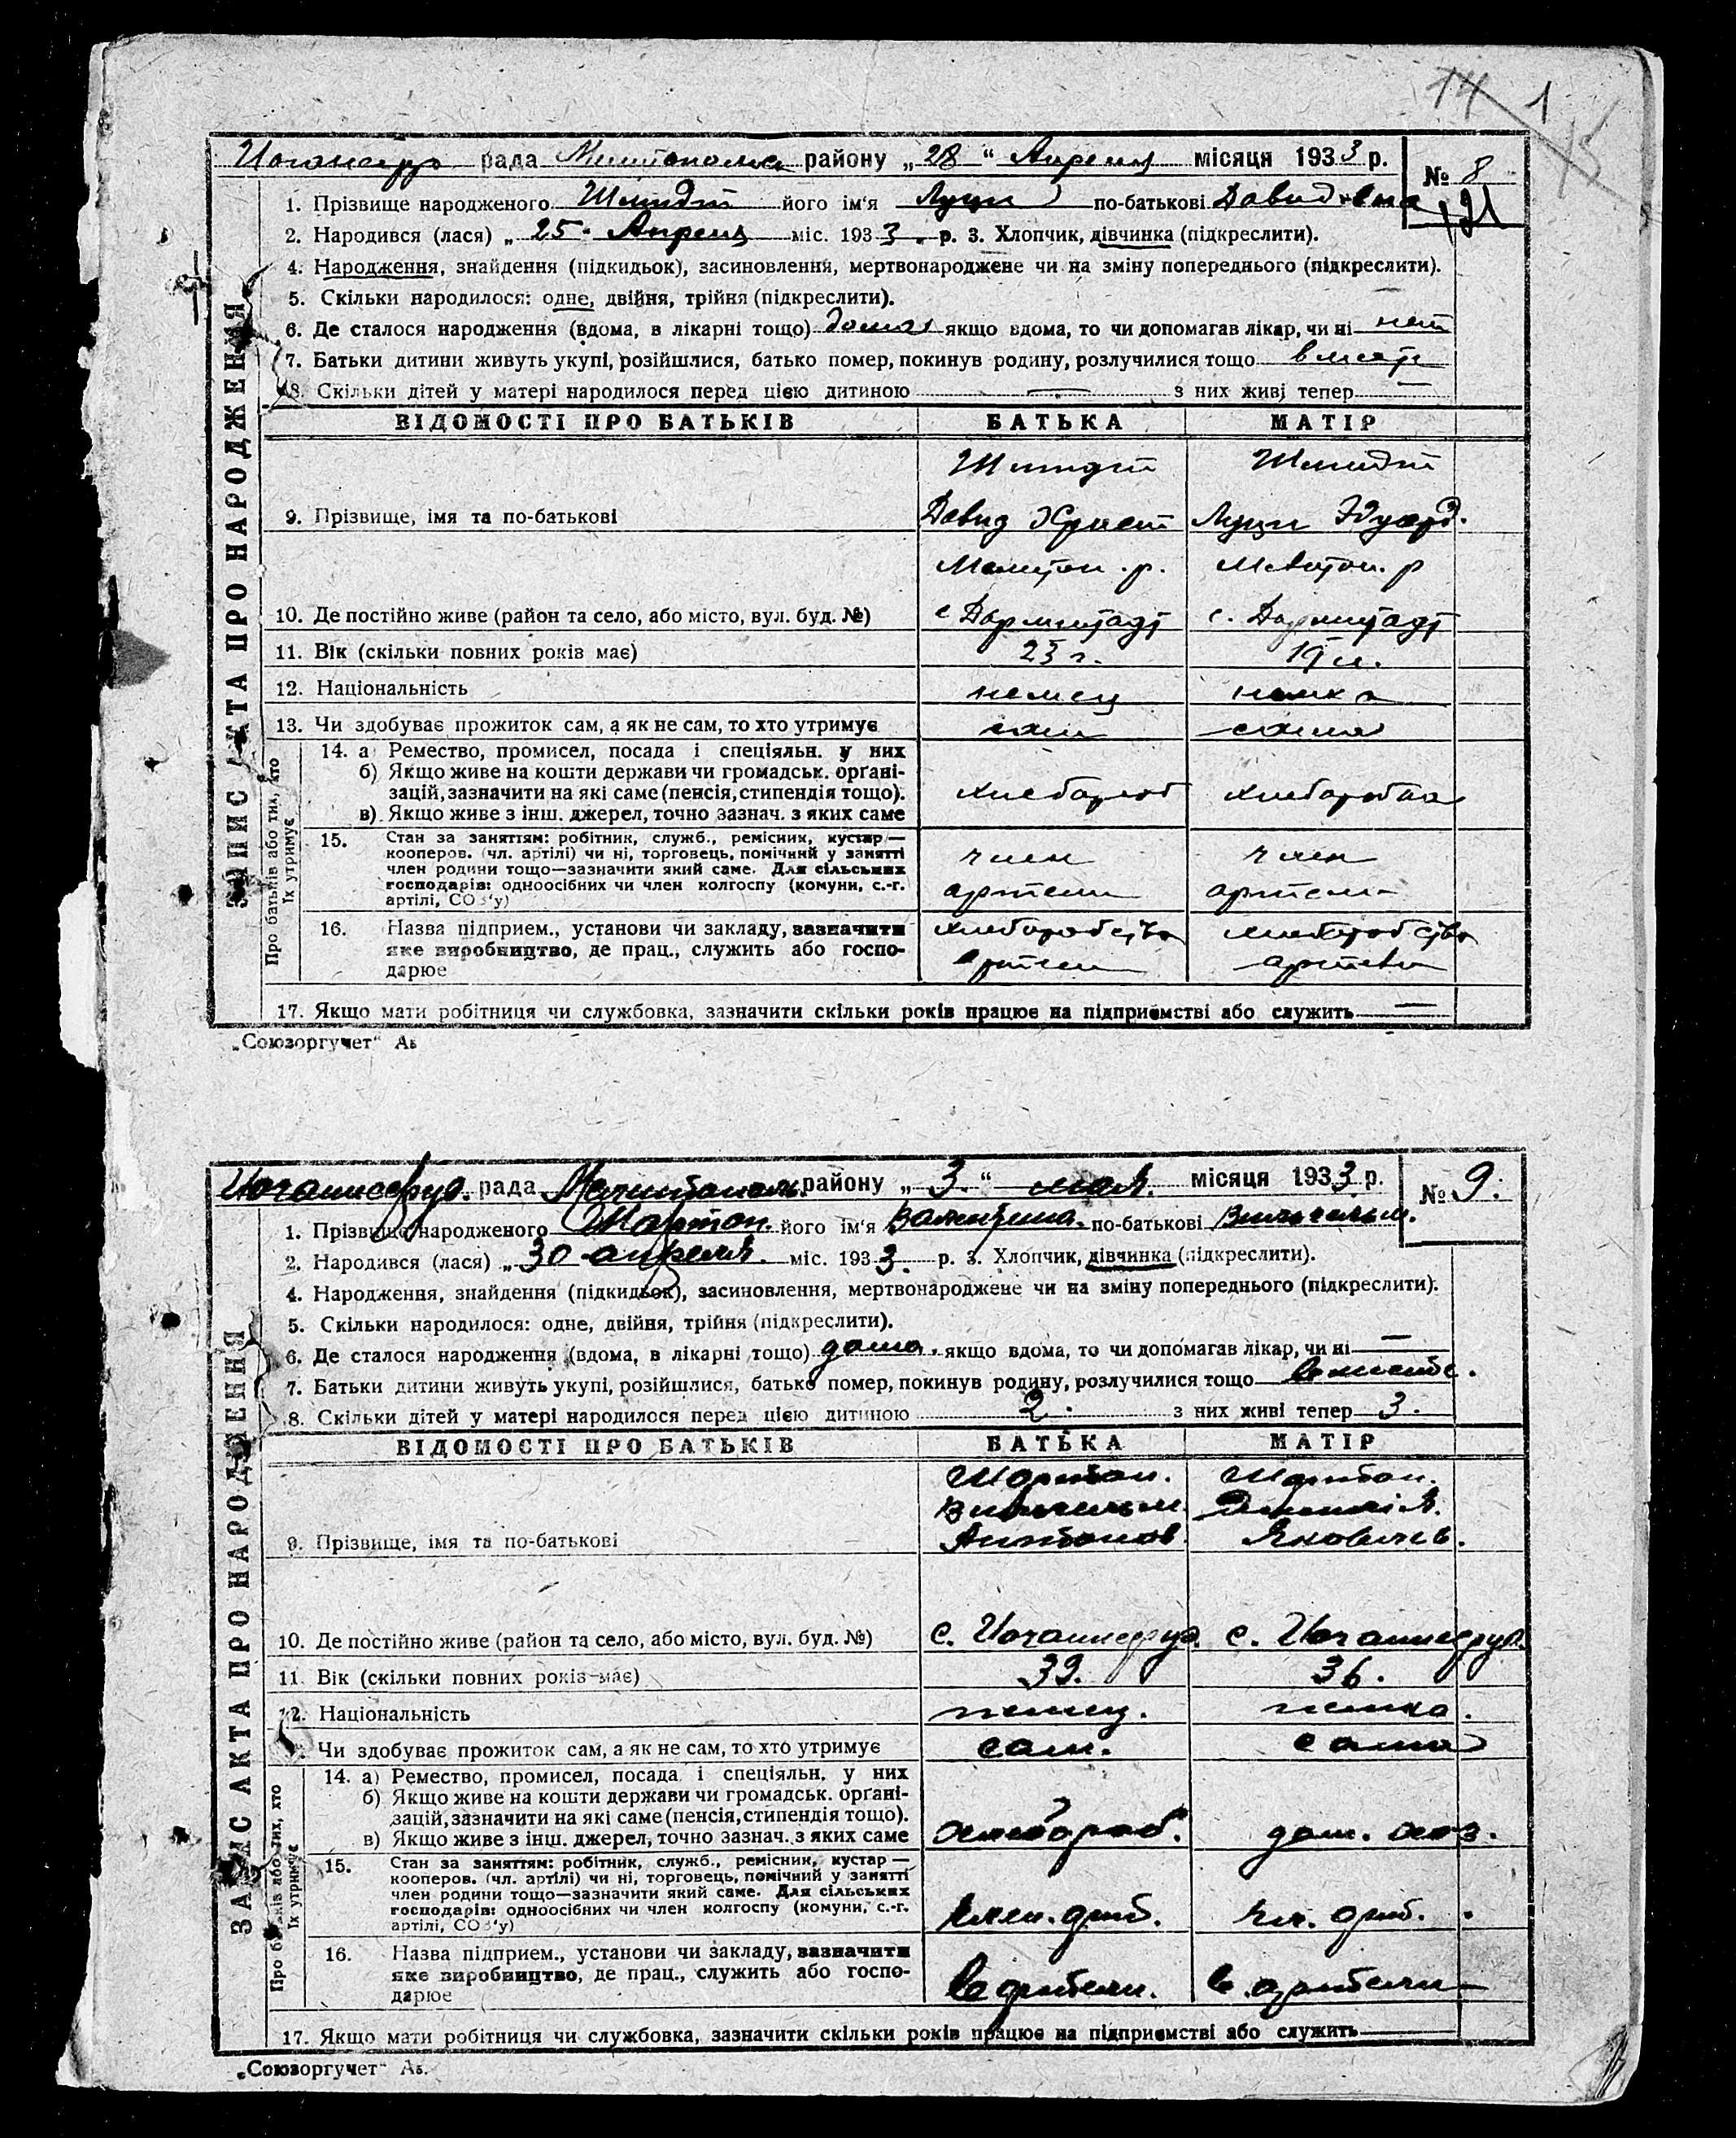 14 1
15
рада района „28“ Апреля місяця 1933 р.
№ 8
21
1. Прізвище народженого Шмидт його ім'я Луци по-батькові Давидовна
2. Народився (лася) „25. Апреля міс. 1933. р. 3. Хлопчик, дівчинка (підкреслити).
4. Народження, знайдення (підкидьок), засиновлення, мертвонароджене чи на зміну попереднього (підкреслити).
5. Скільки народилося: одне, двійня, трійня (підкреслити).
6. Де сталося народження (вдома, в лікарні тощо) дома якщо вдома, то чи допомагав лікар, чи ні нет
7. Батьки дитини живуть укупі, розійшлися, батько помер, покинув родину, розлучилися тощо вместе
8. Скільки дітей у матері народилося перед цією дитиною — з них живі тепер —
ЗАПИС АКТА ПРО НАРОДЖЕННЯ
ВІДОМОСТІ ПРО БАТЬКІВ БАТЬКА МАТІР
Шмидт Шмидт
9. Прізвище, імя та по-батькові Давид Христ Луци Эдуард.
Мелитоп. р. Мелитоп. р
10. Де постійно живе (район та село, або місто, вул. буд. №) с Дармштадт с. Дармштадт
11. Вік (скільки повних років має) 23 г. 19 л.
12. Національність немец немка
13. Чи здобуває прожиток сам, а як не сам, то хто утримує сам сама
Про батьків або тих, хто їх утримує
14. а) Ремество, промисел, посада і спеціяльн. у них
б) Якщо живе на кошти держави чи громадськ. орґані-
зацій, зазначити на які саме (пенсія, стипендія тощо). хлебороб хлеборобка
в) Якщо живе з інш. джерел, точно зазнач. з яких саме
15. Стан за заняттям: робітник, служб., ремісник, кустар—
кооперов. (чл. артілі) чи ні, торговець, помічний у занятті член член
член родини тощо—зазначити який саме. Для сільських
господарів: одноосібних чи член колгоспу (комуни, с.-г. артели артели
артілі, СОЗ'у)
16. Назва підприем., установи чи закладу, зазначити хлеборобство хлеборобство
яке виробництво, де прац., служить або госпо- артели артели
дарює
17. Якщо мати робітниця чи службовка, зазначити скільки років працює на підприємстві або служить —
„Союзоргучет“
рада района „3.“ мая. місяця 1933. р.
№ 9.
1. Прізвище народженого Мартон. його ім'я Валентина. по-батькові Вильгельм.
2. Народився (лася) „30 апреля. міс. 1933. р. 3. Хлопчик, дівчинка (підкреслити).
4. Народження, знайдення (підкидьок), засиновлення, мертвонароджене чи на зміну попереднього (підкреслити).
5. Скільки народилося: одне, двійня, трійня (підкреслити).
6. Де сталося народження (вдома, в лікарні тощо) дома. якщо вдома, то чи допомагав лікар, чи ні —
7. Батьки дитини живуть укупі, розійшлися, батько помер, покинув родину, розлучилися тощо вместе.
8. Скільки дітей у матері народилося перед цією дитиною 2. з них живі тепер 3.
ЗАПИС АКТА ПРО НАРОДЖЕННЯ
ВІДОМОСТІ ПРО БАТЬКІВ БАТЬКА МАТІР
Мартон. Мартон.
Вильгельм.
9. Прізвище, імя та по-батькові Антонов. Яковлев.
10. Де постійно живе (район та село, або місто, вул. буд. №) с. Иоганнесруэ. с. Иоганнесруэ.
11. Вік (скільки повних років має) 39. 36.
12. Національність немец. немка.
Чи здобуває прожиток сам, а як не сам, то хто утримує сам. сама
Про батьків або тих, хто їх утримує
14. а) Ремество, промисел, посада і спеціяльн. у них
б) Якщо живе на кошти держави чи громадськ. орґані-
зацій, зазначити на які саме (пенсія, стипендія тощо).
в) Якщо живе з інш. джерел, точно зазнач. з яких саме дом. хоз.
15. Стан за заняттям: робітник, служб., ремісник, кустар—
кооперов. (чл. артілі) чи ні, торговець, помічний у занятті
член родини тощо—зазначити який саме. Для сільських
господарів: одноосібних чи член колгоспу (комуни, с.-г. член. арт. чл. арт.
артілі, СОЗ'у)
16. Назва підприем., установи чи закладу, зазначити
яке виробництво, де прац., служить або госпо- в артели. в артели
дарює
17. Якщо мати робітниця чи службовка, зазначити скільки років працює на підприємстві або служить —
„Союзоргучет“